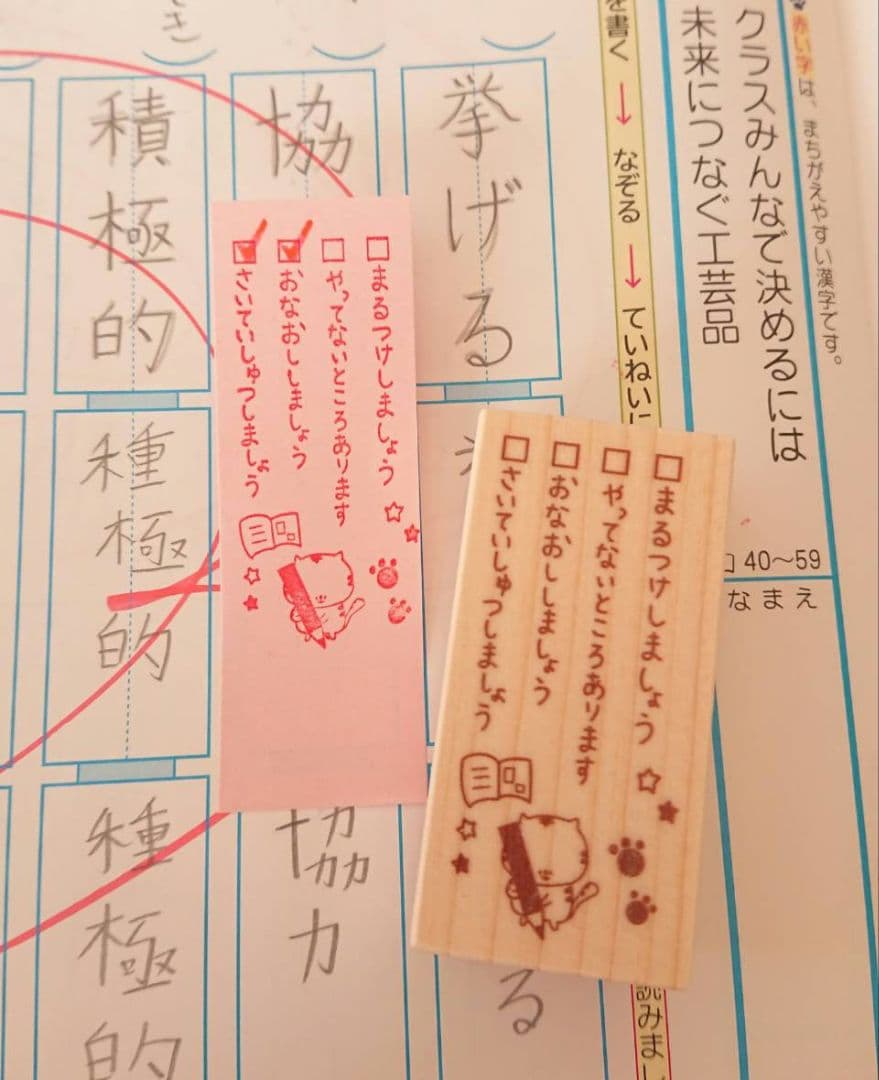 赤い字は、まちがえやすい漢字です。
クラスみんなで決めるには
未来につなぐ工芸品
40〜59
なまえ
を書く → なぞる → ていねいに
読みまし
挙げる
る
協
協力
積極的
種極的
種極的
き
□まるつけしましょう
□やってないところあります
☑おなおししましょう
☑さいていしゅつしましょう
□まるつけしましょう
□やってないところあります
□おなおししましょう
□さいていしゅつしましょう